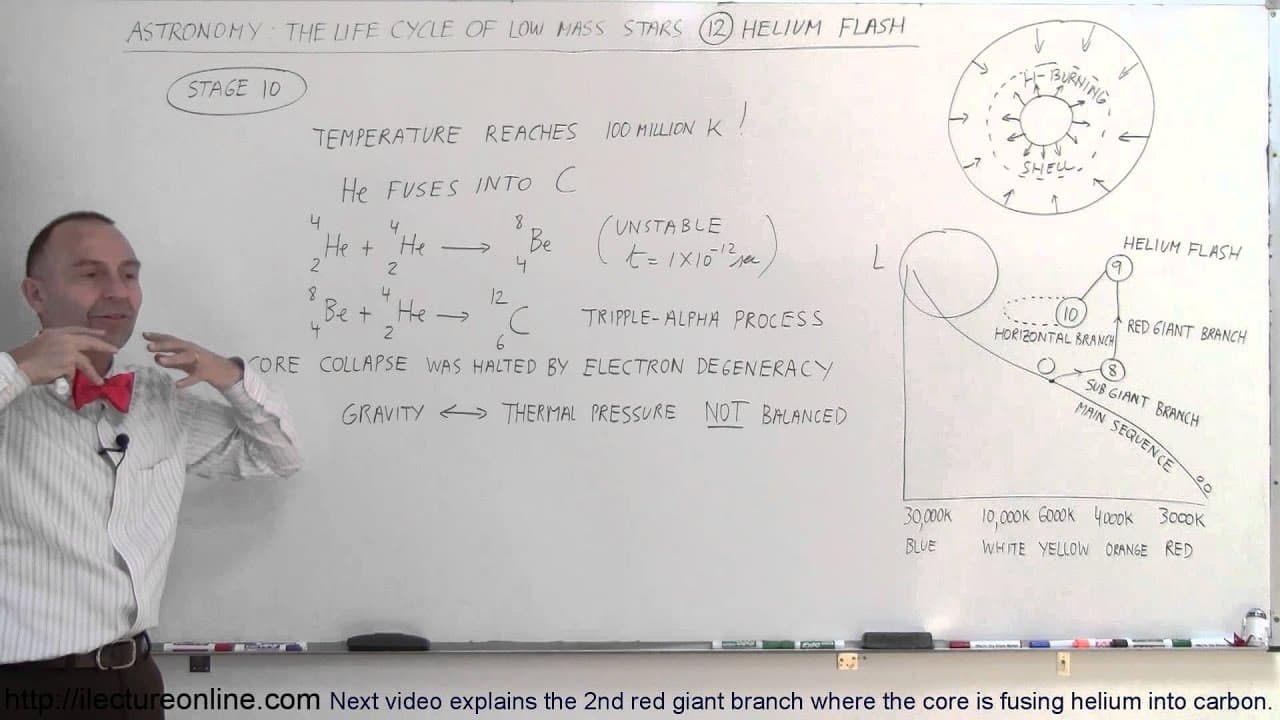 ASTRONOMY: THE LIFE CYCLE OF LOW MASS STARS (12) HELIUM FLASH
STAGE 10
TEMPERATURE REACHES 100 MILLION K !
He FUSES INTO C
⁴₂He + ⁴₂He → ⁸₄Be (UNSTABLE
t = 1×10⁻¹² sec)
⁸₄Be + ⁴₂He → ¹²₆C TRIPPLE-ALPHA PROCESS
CORE COLLAPSE WAS HALTED BY ELECTRON DEGENERACY
GRAVITY ↔ THERMAL PRESSURE NOT BALANCED
H-BURNING
SHELL
L
HELIUM FLASH
9
10
HORIZONTAL BRANCH
RED GIANT BRANCH
8
SUB GIANT BRANCH
MAIN SEQUENCE
30,000K 10,000K 6000K 4000K 3000K
BLUE WHITE YELLOW ORANGE RED
http://ilectureonline.com Next video explains the 2nd red giant branch where the core is fusing helium into carbon.